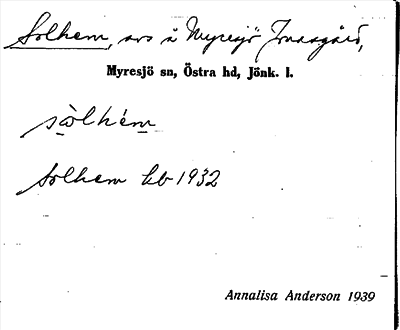 Solhem, avs å Myresjö Jonasgård,
Myresjö sn, Östra hd, Jönk. l.
sòlhém
Solhem kb 1932
Annalisa Anderson 1939